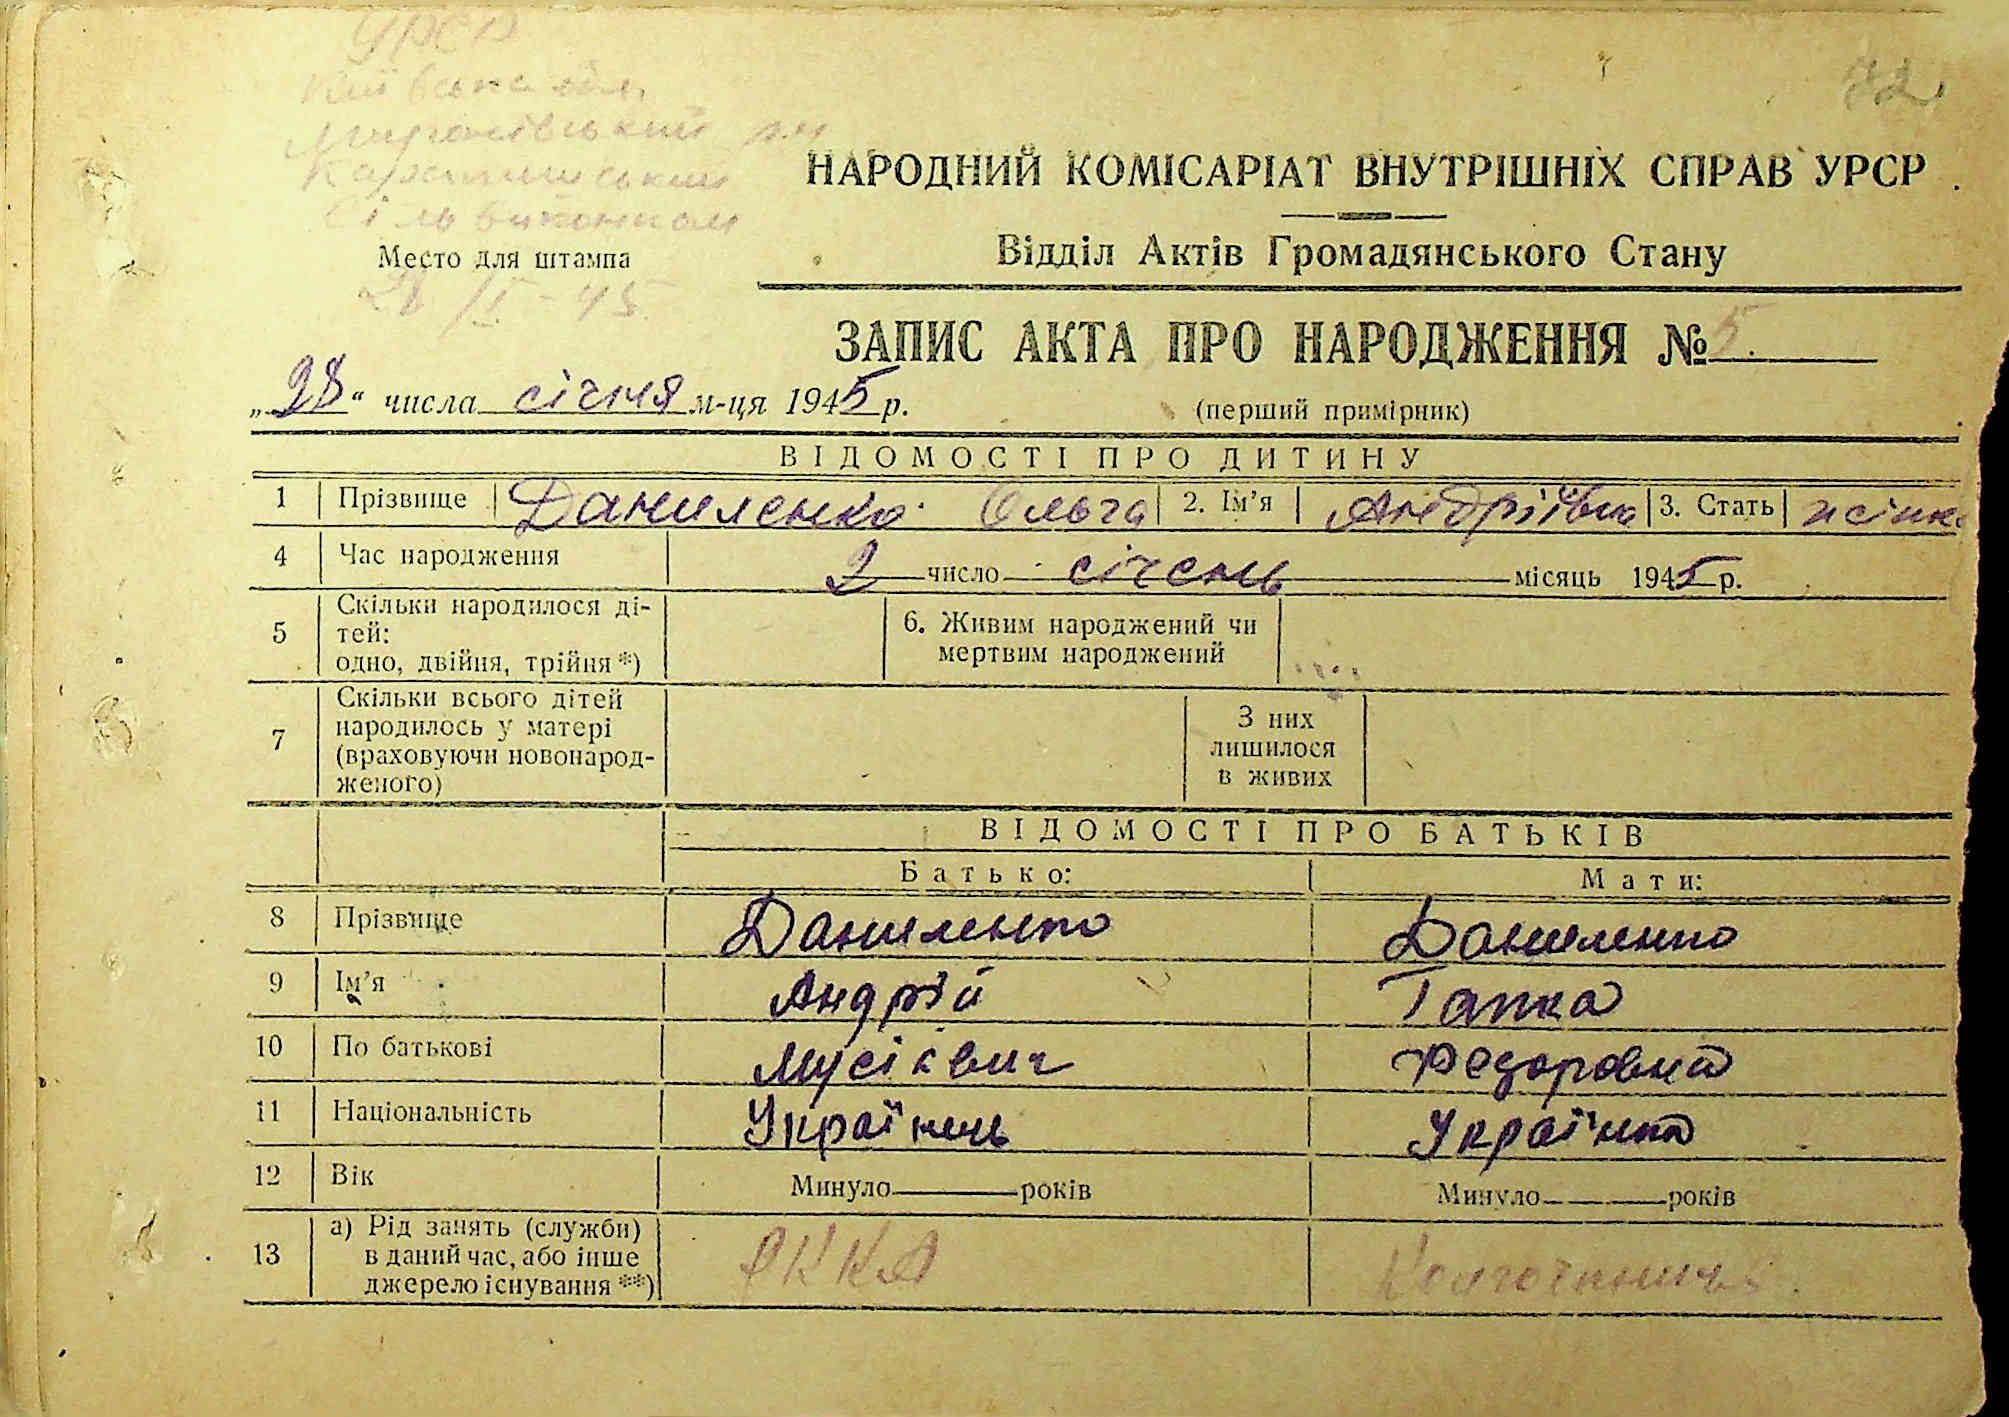 УРСР
Київська обл.
Миронівський р-н
Карапишський
Сільвиконком
82
НАРОДНИЙ КОМІСАРІАТ ВНУТРІШНІХ СПРАВ УРСР
Место для штампа
28/I-45
Відділ Актів Громадянського Стану
ЗАПИС АКТА ПРО НАРОДЖЕННЯ № 5.
„28“ числа січня м-ця 1945 р.
(перший примірник)
ВІДОМОСТІ ПРО ДИТИНУ
1 Прізвище Даниленко Ольга 2. Ім’я Андріївна 3. Стать жінк
4 Час народження 2 число січень місяць 1945 р.
5 Скільки народилося ді-
тей:
одно, двійня, трійня *)
6. Живим народжений чи
мертвим народжений
7 Скільки всього дітей
народилось у матері
(враховуючи новонарод-
женого)
З них
лишилося
в живих
ВІДОМОСТІ ПРО БАТЬКІВ
Батько: Мати:
8 Прізвище Даниленко Даниленко
9 Ім’я Андрій Гапка
10 По батькові Мусієвич Федоровна
11 Національність Українець Українка
12 Вік Минуло років Минуло років
13 а) Рід занять (служби)
в даний час, або інше
джерело існування **)
РККА Колгоспниця.